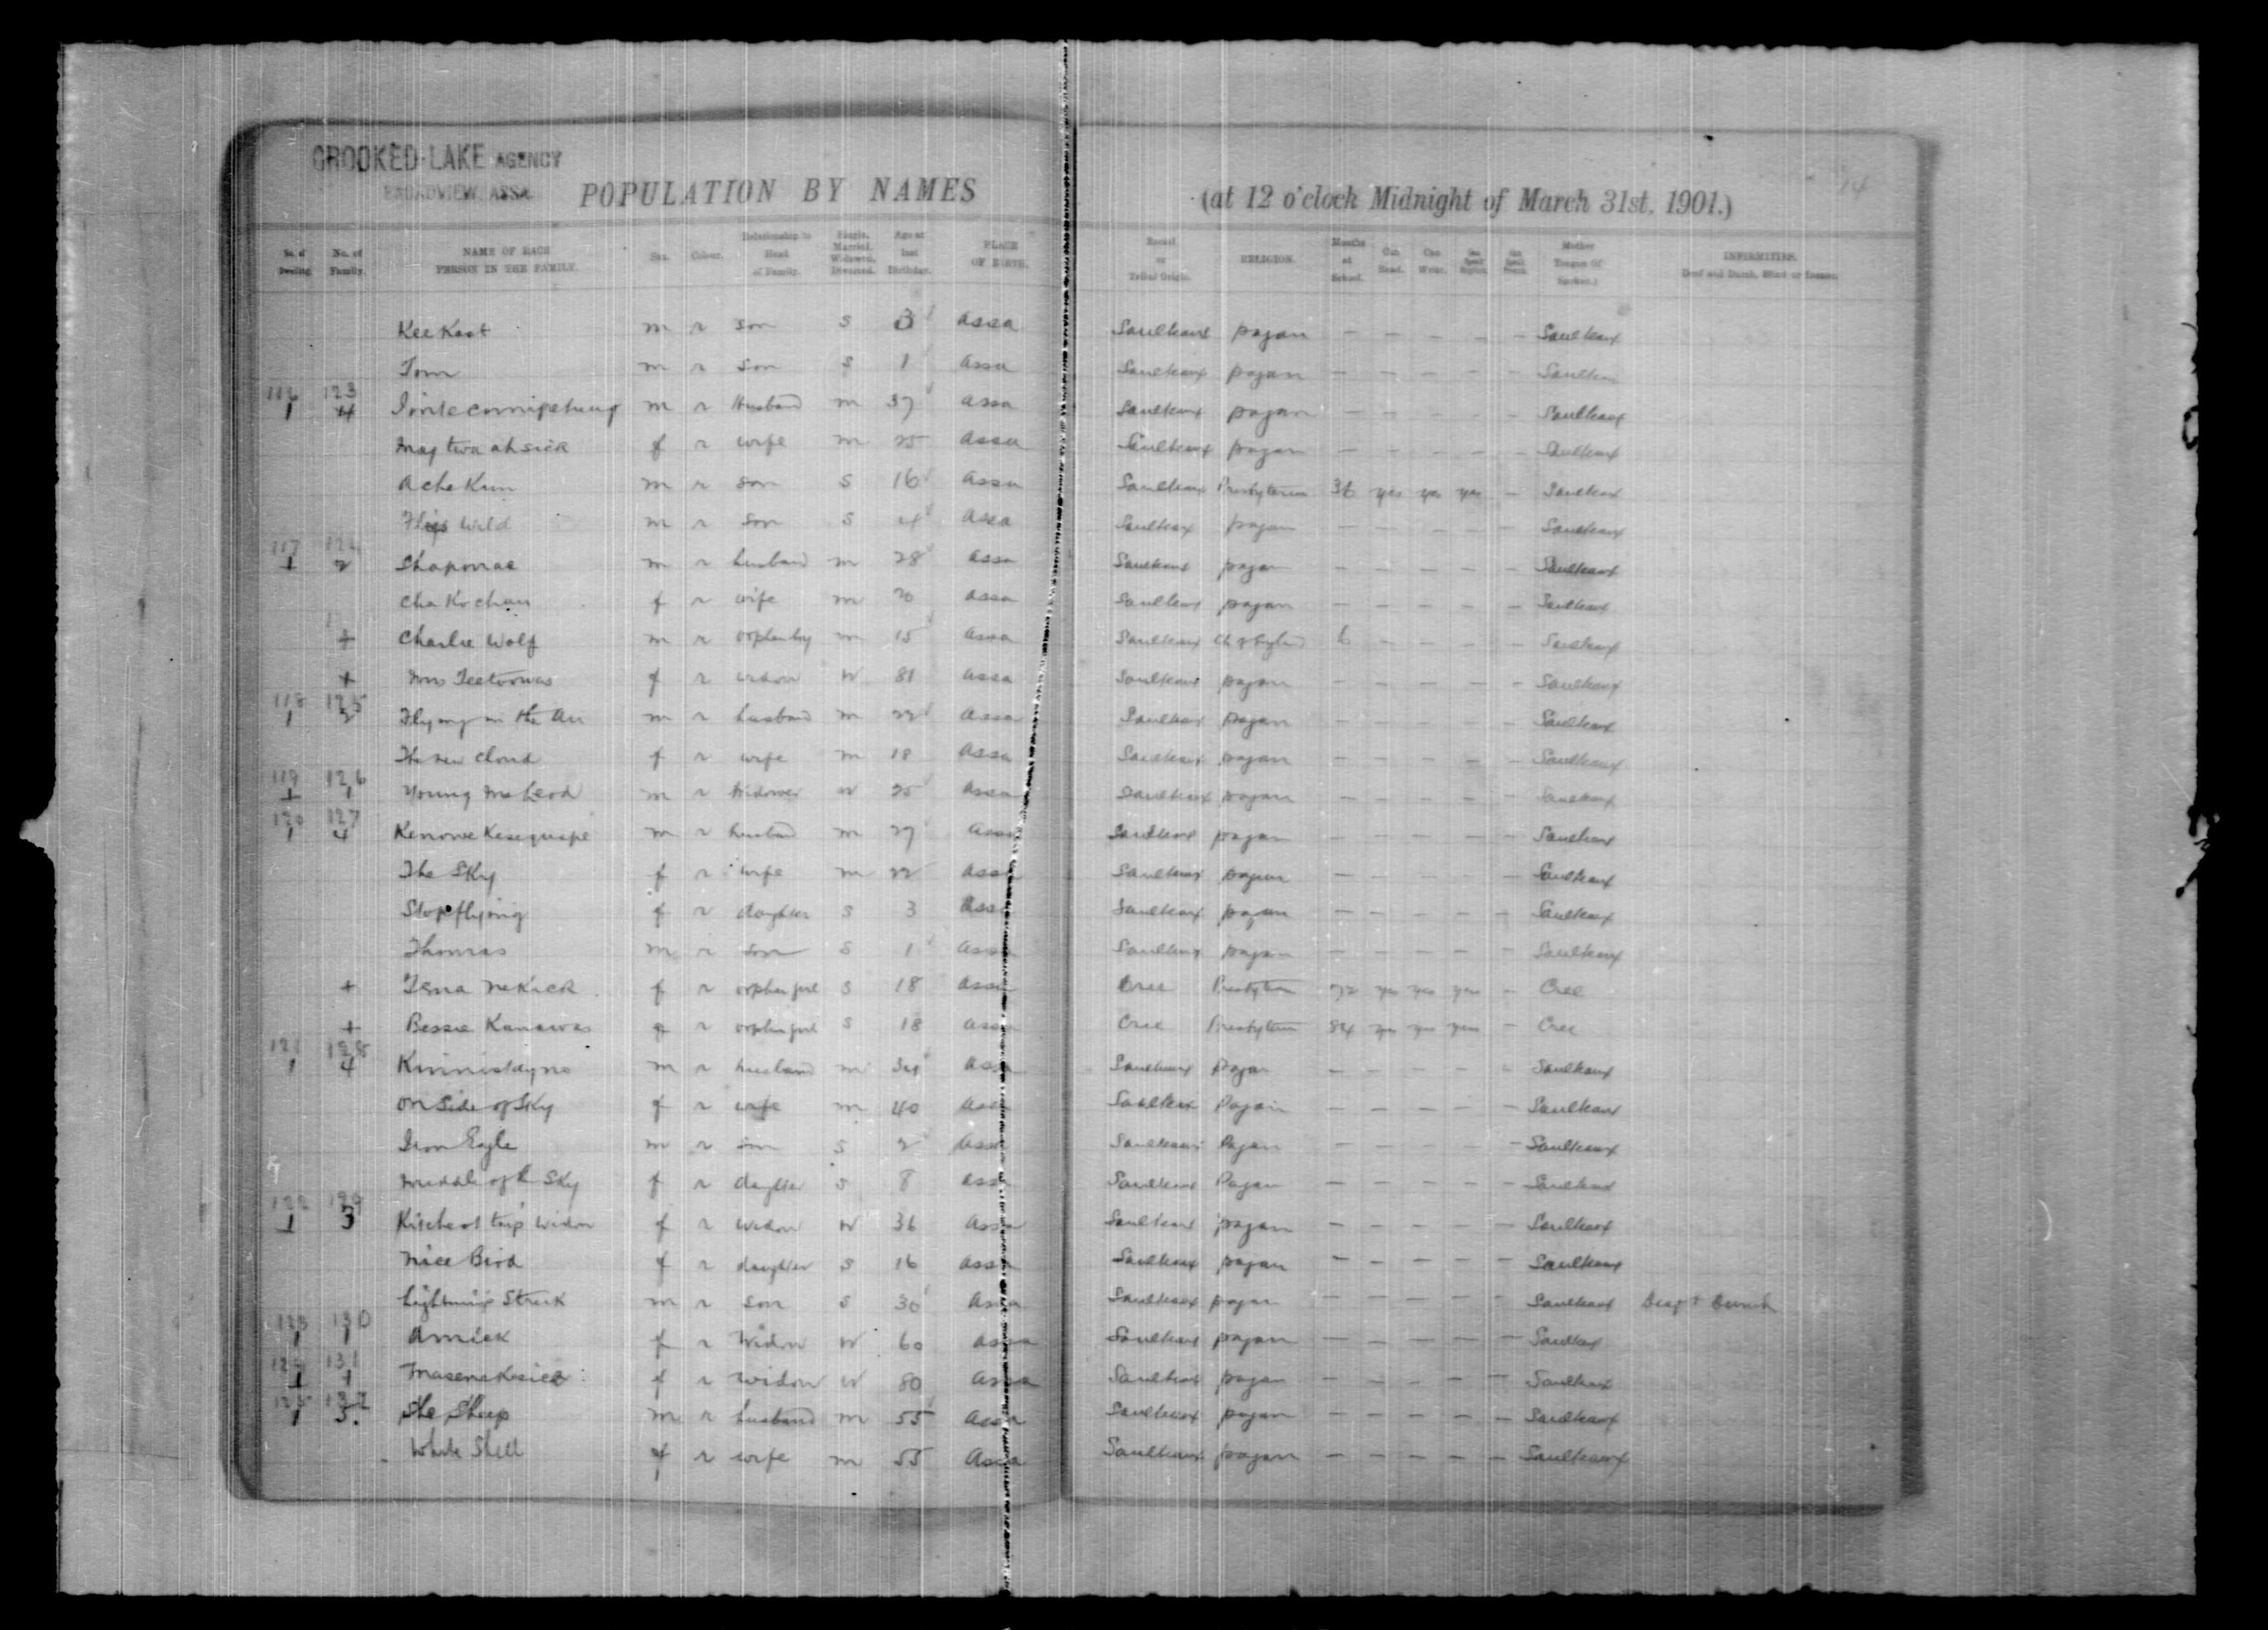 CROOKED LAKE AGENCY
BROADVIEW, ASSA.
POPULATION BY NAMES (at 12 o'clock Midnight of March 31st, 1901.)
No. of Dwelling. No. of Family. NAME OF EACH PERSON IN THE FAMILY. Sex. Colour. Relationship to Head of Family. Single, Married, Widowed, Divorced. Age at last Birthday. PLACE OF BIRTH. Racial or Tribal Origin. RELIGION. Months at School. Can Read. Can Write. Can Speak English. Can Speak French. Mother Tongue (if spoken.) INFIRMITIES. Deaf and Dumb, Blind or Insane.
Kee Kaot m r son s 3 Assa Saulteaux pagan – – – – – Saulteaux
Tom m r son s 1 Assa Saulteaux pagan – – – – – Saulteaux
116 123 1 4 m r Husband m 37 Assa Saulteaux pagan – – – – – Saulteaux
May twa ah sick f r wife m 25 Assa Saulteaux pagan – – – – – Saulteaux
Ache Kun m r son s 16 Assa Saulteaux Presbyterian 36 yes yes yes – Saulteaux
Wild m r son s 4 Assa Saulteaux pagan – – – – – Saulteaux
117 124 1 2 Shaponae m r husband m 28 Assa Saulteaux pagan – – – – – Saulteaux
Cha Ko chan f r wife m 20 Assa Saulteaux pagan – – – – – Saulteaux
+ Charlie Wolf m r orphan boy m 15 Assa Saulteaux Ch of England 6 – – – – Saulteaux
+ Mrs Teetoowas f r widow W 81 Assa Saulteaux pagan – – – – – Saulteaux
118 125 1 2 Flying in the Air m r husband m 22 Assa Saulteaux pagan – – – – – Saulteaux
The new Cloud f r wife m 18 Assa Saulteaux pagan – – – – – Saulteaux
119 126 1 1 Young McLeod m r Widower W 25 Assa Saulteaux pagan – – – – – Saulteaux
120 127 1 4 Kenowe Kesequape m r husband m 27 Assa Saulteaux pagan – – – – – Saulteaux
The Sky f r wife m 22 Assa Saulteaux pagan – – – – – Saulteaux
Stop flying f r daughter s 3 Assa Saulteaux pagan – – – – – Saulteaux
Thomas m r son s 1 Assa Saulteaux pagan – – – – – Saulteaux
+ Nekick f r orphan girl s 18 Assa Cree Presbyterian 72 yes yes yes – Cree
+ Bessie Kanawas f r orphan girl s 18 Assa Cree Presbyterian 84 yes yes yes – Cree
121 128 1 4 Kinnistayno m r husband m 34 Assa Saulteaux Pagan – – – – – Saulteaux
On Side of Sky f r wife m 40 Assa Saulteaux Pagan – – – – – Saulteaux
Iron Eagle m r son s 2 Assa Saulteaux Pagan – – – – – Saulteaux
Middle of the Sky f r daughter s 8 Assa Saulteaux Pagan – – – – – Saulteaux
122 129 1 3 widow f r widow W 36 Assa Saulteaux pagan – – – – – Saulteaux
Nice Bird f r daughter s 16 Assa Saulteaux pagan – – – – – Saulteaux
Lightning Struck m r son s 30 Assa Saulteaux pagan – – – – – Saulteaux Deaf & Dumb
123 130 1 1 Amick f r Widow W 60 Assa Saulteaux pagan – – – – – Saulteaux
124 131 1 1 f r widow W 80 Assa Saulteaux pagan – – – – – Saulteaux
125 132 1 5. The Sheep m r husband m 55 Assa Saulteaux pagan – – – – – Saulteaux
White Shell f r wife m 55 Assa Saulteaux pagan – – – – – Saulteaux